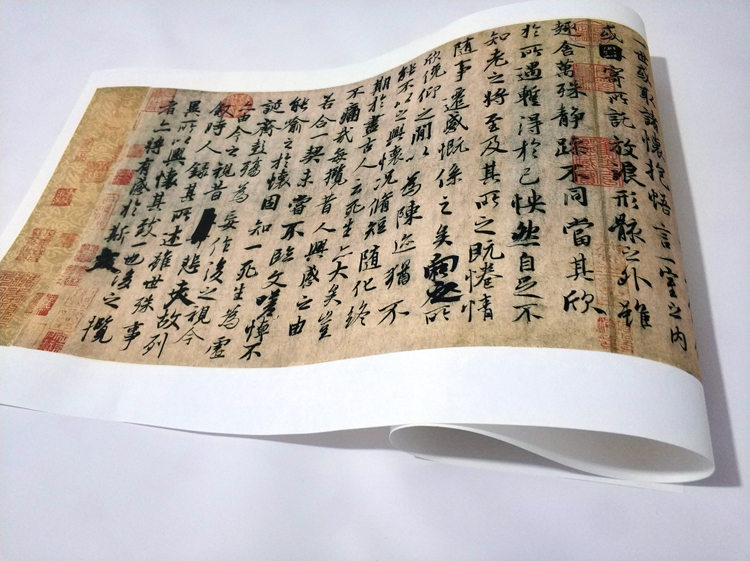 世或取諸懷抱悟言一室之內
或因寄所託放浪形骸之外雖
趣舍萬殊靜躁不同當其欣
於所遇暫得於己怏然自足不
知老之將至及其所之既惓情
隨事遷感慨係之矣向之所
欣俛仰之閒以為陳迹猶不
能不以之興懷況脩短隨化終
期於盡古人云死生亦大矣豈
不痛哉每攬昔人興感之由
若合一契未嘗不臨文嗟悼不
能喻之於懷固知一死生為虛
誕齊彭殤為妄作後之視今
亦由今之視昔悲夫故列
敘時人錄其所述雖世殊事
異所以興懷其致一也後之攬
者亦將有感於斯文